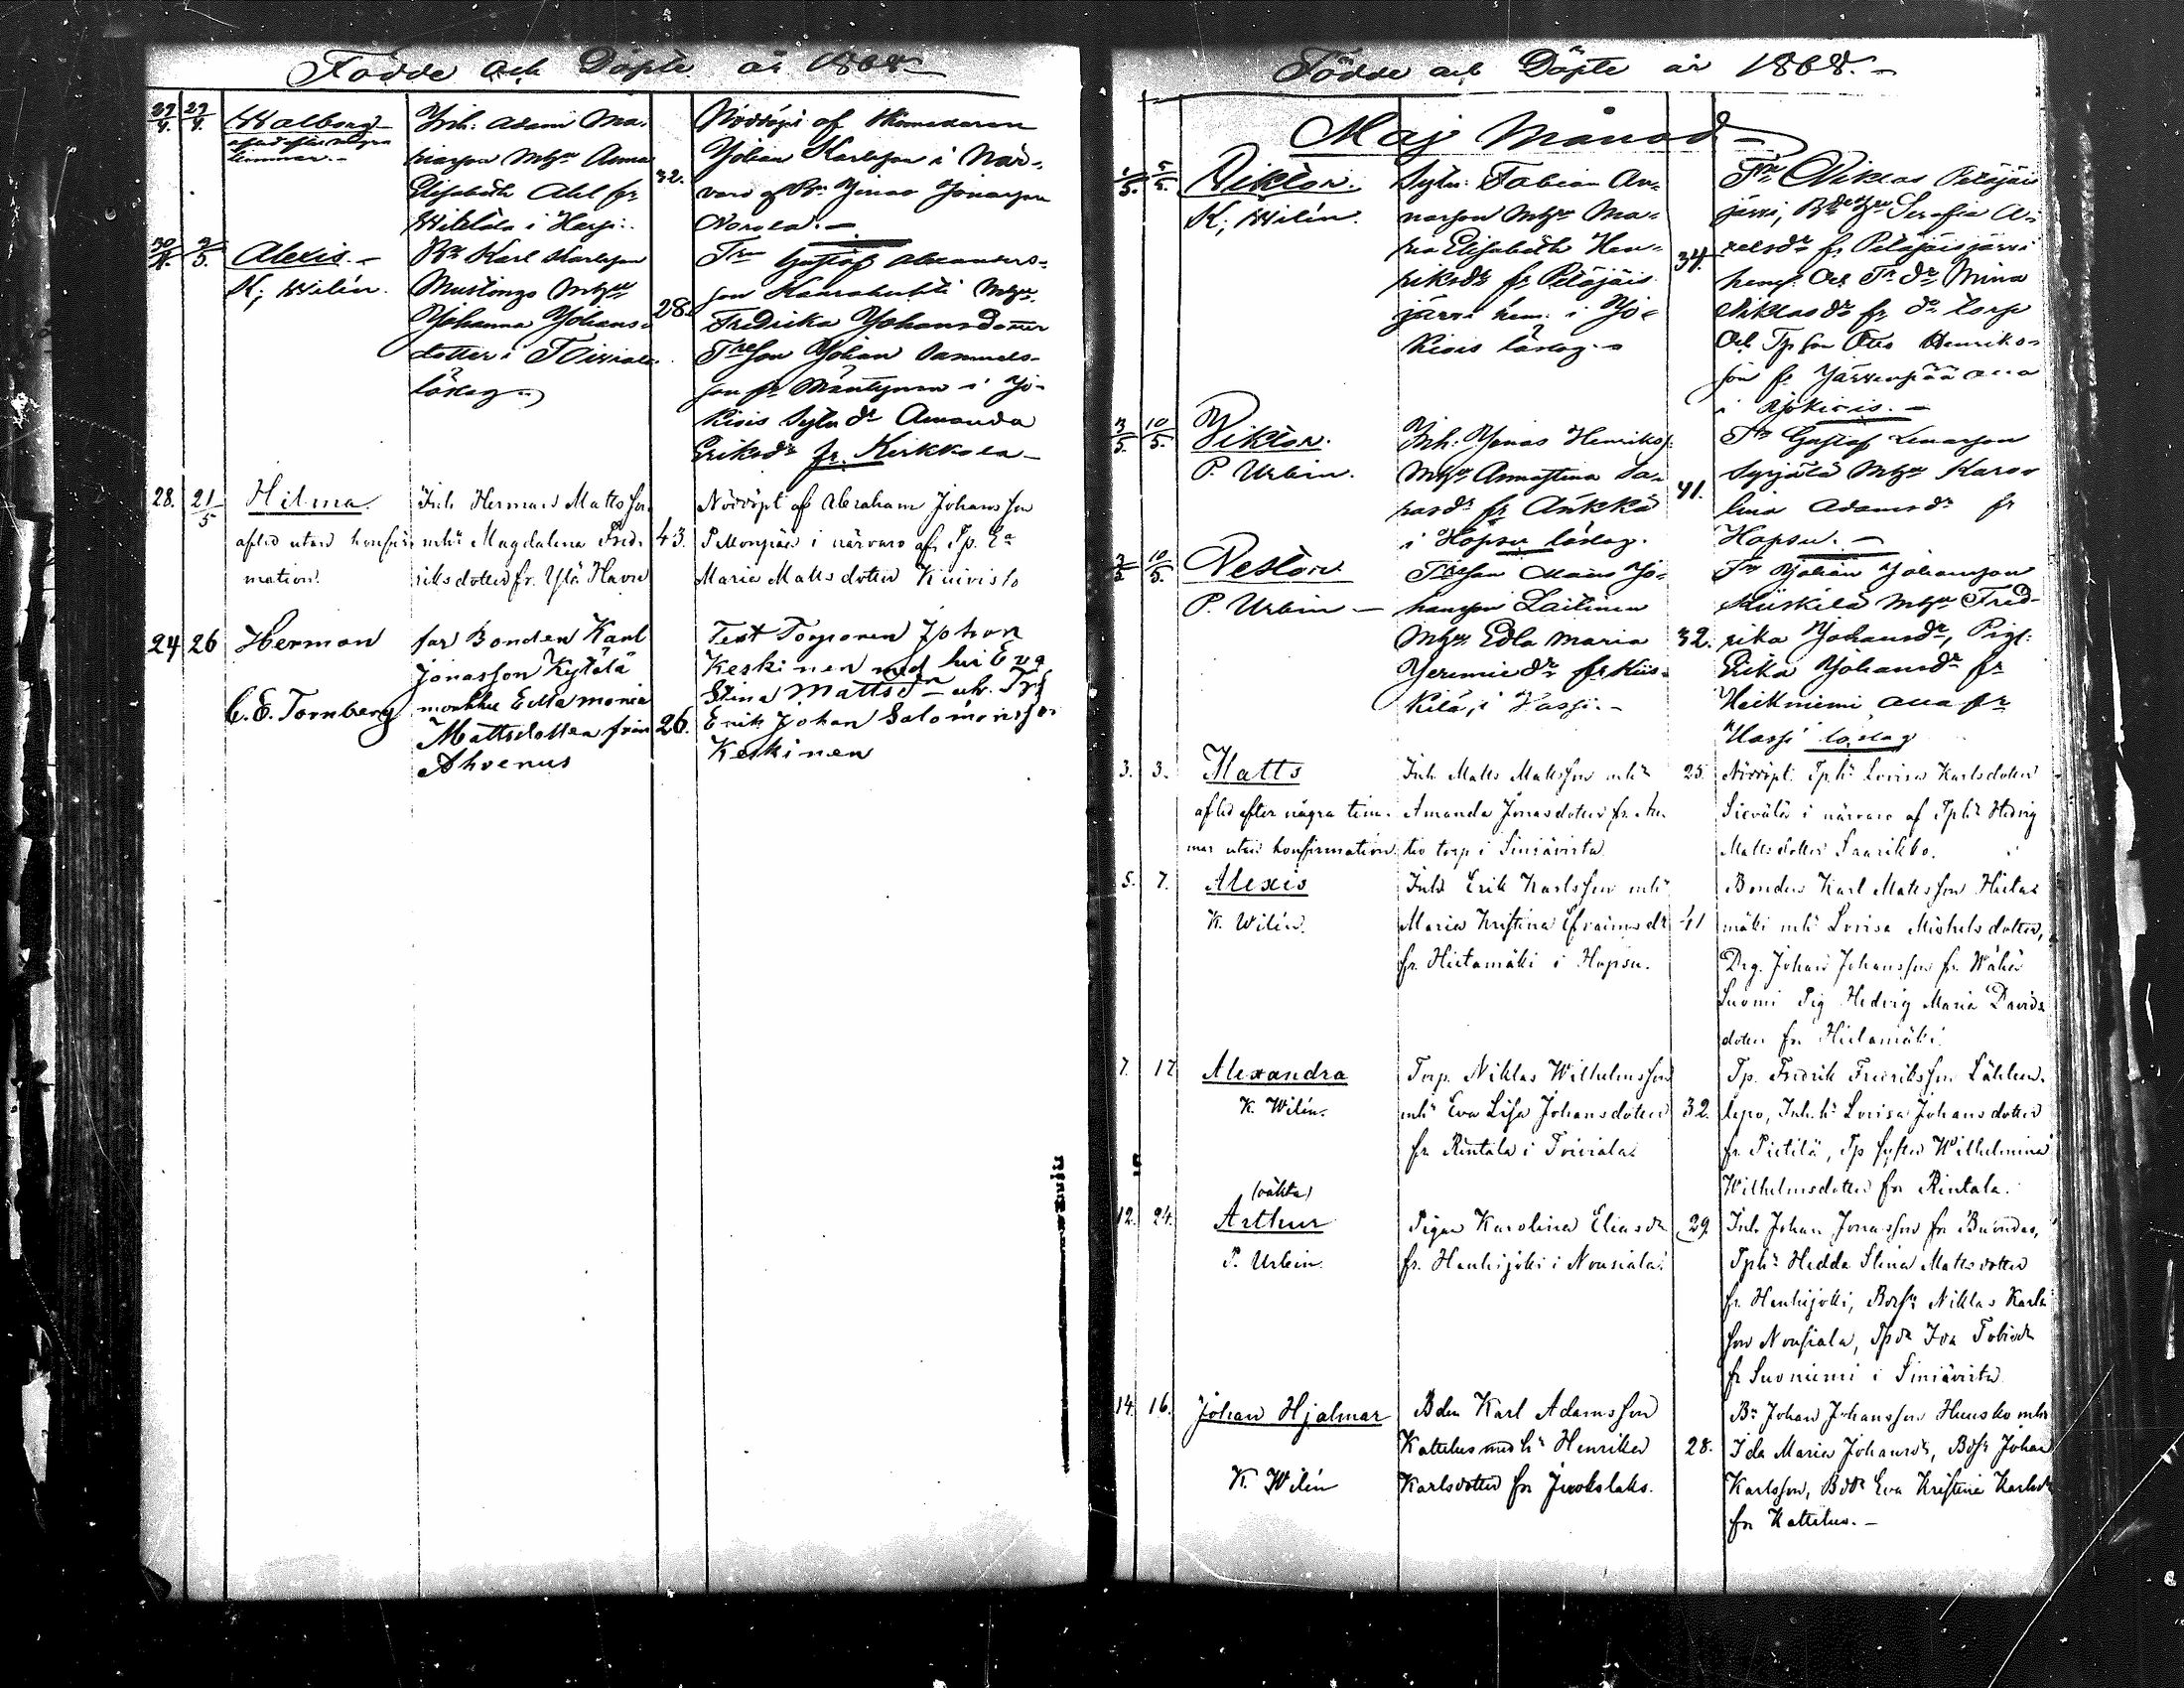 Födde och Döpte år 1868.
29/4. 29/4. Walborg
aflid efter några
timmar.
Inh: Adam Ma-
M:hu Anna
Elisabeth Abl. fr
i Harju.
32.
Nöddöpt af
Johan Karlsson i när-
varo af Br Jonas Jonasson
Norola.
30/4. 2/5. Alexis.
K; Wilén.
Br Karl Karlsson
Mustonzo M:hu
Johanna Johans-
dotter i Toiviala
löslag
28.
Trn Gustaf Alexanders-
son M:hu
Fredrika Johansdotter
Trson Johan Samuels-
son fr Mäntynen i Jo-
kisis Sytn dr Amanda
Eriksdr fr. Kirkkola
28. 21/5 Hilma
aflid utan konfir-
mation.
Inh Herman Mattsson
mhu Magdalena Fred-
riksdotter fr. Ylä Havu
43.
Nöddöpt af Abraham Johansson
i närvaro af Tp. Ea
Maria Mattsdotter Knivisto
24 26 Herman
C. E. Tornberg
far Bonden Karl
Jonasson Kytölä
mor hu Edla Maria
Mattsdotter från
Ahvenus
26.
Test Torparen Johan
Keskinen med hu Eva
Stina Mattsdr och Tps
Erik Johan Salomonsson
Keskinen
Födde och Döpte år 1868.
Maj Månad
1/5. 5/5. Viktor.
K; Wilén.
Sytn: Fabian An-
narson M:hu Ma-
ria Elisabeth Hen-
riksdr fr Petäjäis
järvi hem. i Jo-
kisis löslag.
34.
Trn Niklas Petäjäis
järvi, Serafia A-
relsdr fr Petäjäisjärvi
hem. Och Tr dr Mina
Niklasdr fr do torp
Och Tp son Otto Henriks-
son fr Järvenpää alla
i Jokisis.
3/5. 10/5. Viktor.
P. Urbin.
Inh: Jonas Henriks
M:hu Annastina Sa-
rasdr fr Ankkä
i Hopsu löslag.
41.
Tr Gustaf Enarsson
Syrjälä M:hu Karo-
lina Adamsdr fr
Hopsu.
3/5. 10/5. Nestor
P. Urbin
Trson Måns Jo-
hansson Laitinen
M:hu Edla Maria
Jeremiedr fr Kiis-
kilä, i Hassi.
32.
Tr Johan Johansson
Kiiskilä M:hu Fred-
rika Johansdr, Pig:
Erika Johansdr fr
Heikniemi alla fr
Hassi löslag
3. 3. Matts
aflid efter några tim-
mar utan konfirmation
Inh. Matts Mattsson mhu
Amanda Jonasdotter fr. An-
tio torp i Siniävirta
25.
Nöddöpt. Tphu Lovisa Karlsdotter
Sievälä i närvaro af Tphu Hedvig
Mattsdotter Saarikko.
5. 7. Alexis
K. Wilén.
Inh Erik Karlsson mhu
Maria Kristina Efraimsdr
fr. Hietamäki i Hopsu.
41
Bonden Karl Mattsson Hieta-
mäki mhu Lovisa Michelsdotter,
Drg. Johan Johansson fr. Wähä
Suomi Pig Hedvig Maria Davids-
dotter fr. Hietamäki.
7. 17 Alexandra
K. Wilén.
Torp. Niklas Wilhelmsson
mhu Eva Lisa Johansdotter
fr. Rintala i Toiviala.
32.
Tp. Fredrik Fredriksson Lähteen-
lepo, Inh.hu Lovisa Johansdotter
fr. Pietilä, Tp syster Wilhelmina
Wilhelmsdotter fr. Rintala.
12. 24. (oäkta)
Arthur
P. Urbin.
Pigan Karolina Eliasdr
fr. Hankijoki i Nousiala.
29.
Inh Johan Jonasson fr.
Tphu Hedda Stina Mattsdotter
fr. Hankijoki, Bdsn Niklas Karls-
son Nousiala, Tpdr Ida Tobiedr
fr Suoniemi i Siniävirta
14. 16. Johan Hjalmar
K. Wilén
Bden Karl Adamsson
Kattelus med hu Henrika
Karlsdotter fr. Jookslaks.
28.
Br Johan Johansson Huusko mhu
Ida Maria Johansdr, Bdsn Johan
Karlsson, Bddr Eva Kristina Karlsdr
fr Kattelus.